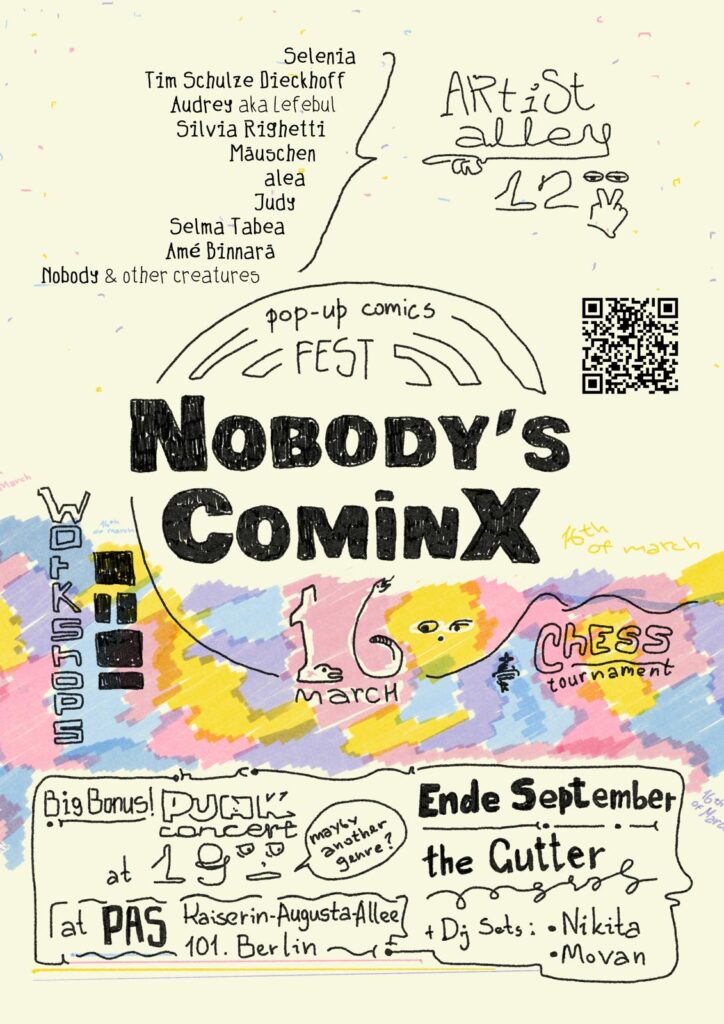 Selenia
Tim Schulze Dieckhoff
Audrey aka Lefebul
Silvia Righetti
Mäuschen
alea
Judy
Selma Tabea
Amé Binnarā
Nobody & other creatures
ARtiSt
alley
12
pop-up comics
FEST
NOBODY'S
COMINX
16th
of march
March
16th
of march
WorKshops
16
MARCH
CHESS
tournament
Big Bonus! PUNK
concert
at 19
mayby
another
genre?
at PAS Kaiserin-Augusta-Allee
101. Berlin
Ende September
the Gutter
+ Dj Sets: • Nikita
• Movan
16th
of March